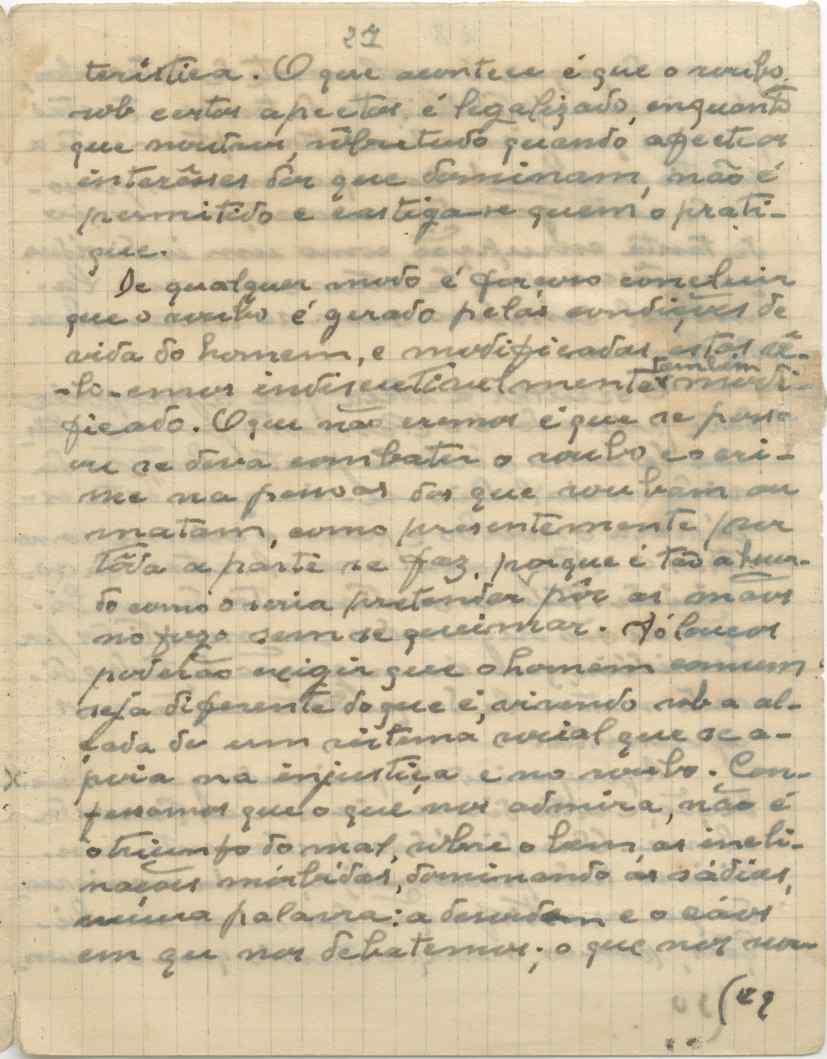 27
terística. O que acontece é que o roubo,
sob certos apectos é legalizado, enquanto
que noutros, sôbretudo quando afecta os
interêsses dos que dominam, não é
permitido e castiga-se quem o prati-
que.
De qualquer modo é forçoso concluir
que o roubo é gerado pelas condições de
vida do homem, e modificadas estas sê-
-lo-emos indiscutivelmente também modi-
ficado. O que não cremos é que se possa
ou se deva combater o roubo e o cri-
me na pessoas dos que roubam ou
matam, como presentemente por
tôda a parte se faz, porque é tão absur-
do como o seria pretender pôr as mãos
no fogo sem se queimar. Só loucos
poderão exigir que o homem comum
seja diferente do que é, vivendo sob a al-
çada de um sistema social que se a-
poia na injustiça e no roubo. Con-
fessamos que o que nos admira, não é
o triunfo do mal, sobre o bem, as incli-
nações mórbidas, dominando as sádias,
numa palavra: a desordem e o cáos
em qu nos debatemos; o que nos